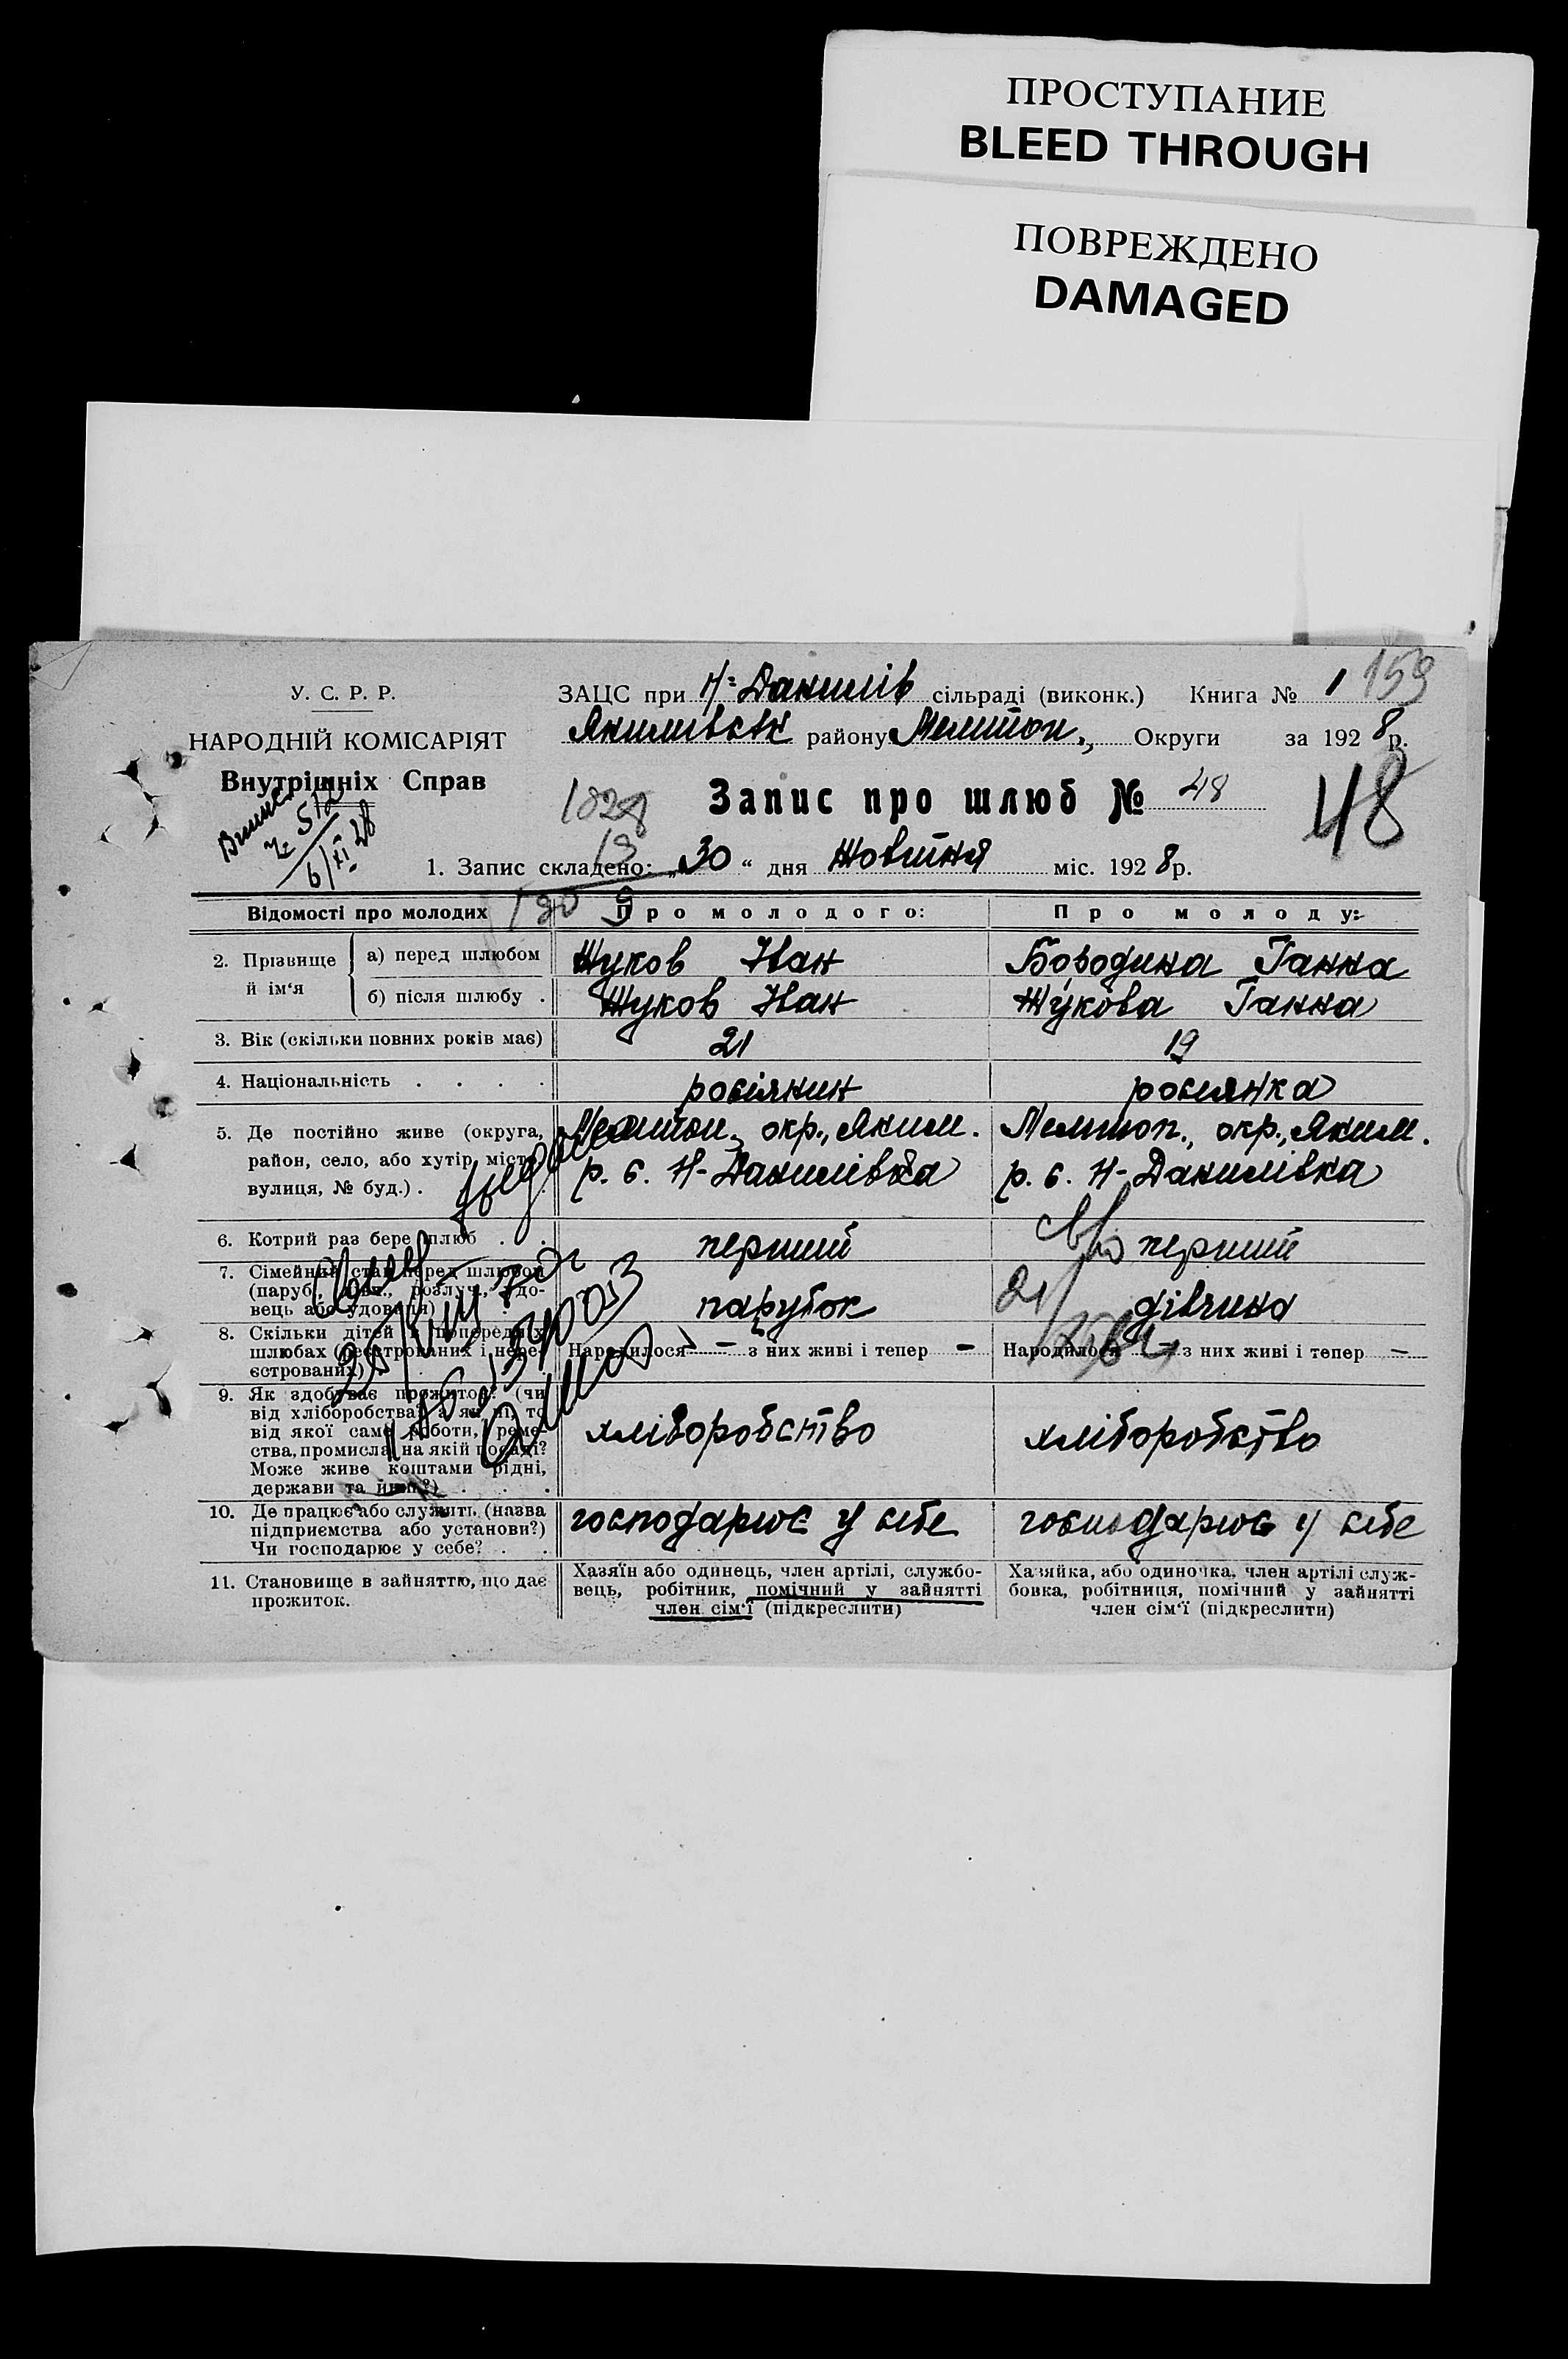 ПРОСТУПАНИЕ
BLEED THROUGH
ПОВРЕЖДЕНО
DAMAGED
У. С. Р. Р.
НАРОДНІЙ КОМІСАРІЯТ
Внутрішніх Справ
ЗАЦС при Н-Данилів сільраді (виконк.) Книга № 1 159
Якимівськ району Мелітоп., Округи за 192 8 р.
Запис про шлюб № 48
48
6/XI 28
1. Запис складено: „30“ дня Жовтня міс. 192 8 р.
Відомості про молодих Про молодого: Про молоду:
2. Прізвище й ім‘я
а) перед шлюбом Жуков Іван Бородина Ганна
б) після шлюбу . Жуков Іван Жукова Ганна
3. Вік (скільки повних років має) 21 19
4. Національність . . . . росіянин росиянка
5. Де постійно живе (округа, Мелитоп., окр., Яким. Мелитоп., окр., Яким.
район, село, або хутір, місто, р. с. Н-Данилівка р. с. Н-Данилівка
вулиця, № буд.) .
6. Котрий раз бере шлюб . . перший перший
7. Сімейний стан перед шлюбом
(паруб., дівч., розлуч., вдо-
вець або удовиця) парубок дівчина
8. Скільки дітей в попередніх
шлюбах (реєстрованих і нере- Народилося — з них живі і тепер — Народилося з них живі і тепер —
єстрованих)
9. Як здобуває прожиток? (чи
від хліборобства? а як ні, то
від якої саме роботи, реме- хліборобство хліборобство
ства, промисла, на якій посаді?
Може живе коштами рідні,
держави та инш?) . . .
10. Де працює або служить (назва господарює у себе господарює у себе
підприємства або установи?)
Чи господарює у себе? . .
11. Становище в зайняттю, що дає
прожиток.
Хазяїн або одинець, член артілі, службо-
вець, робітник, помічний у зайнятті
член сім‘ї (підкреслити)
Хазяйка, або одиночка, член артілі служ-
бовка, робітниця, помічний у зайнятті
член сім‘ї (підкреслити)